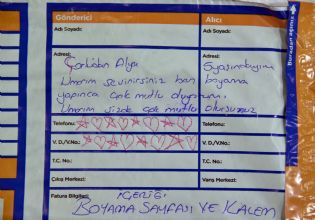 Gönderici Alıcı
Adı Soyadı: Adı Soyadı:
Buradan açınız
Adresi: Adresi:
Çorludan Alya
Umarım sevinirsiniz ben boyama
yapınca çok mutlu oluyorum
Umarım sizde çok mutlu olursunuz
Telefonu: Telefonu:
V. D./V.No.: V. D./V.No.:
T.C. No.: T.C. No.:
Çıkış Merkezi: Varış Merkezi:
Fatura Bilgileri: İÇERİĞİ
BOYAMA SAYFASI VE KALEM